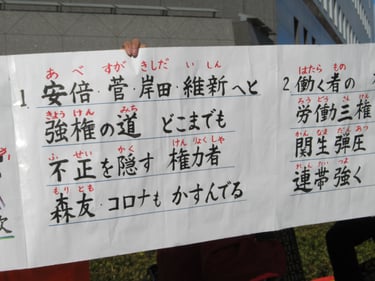 1.安倍・菅・岸田・維新へと
強権の道 どこまでも
不正を隠す 権力者
森友・コロナも かすんでる
2.働く者の
労働三権
関生弾圧
連帯強く
次
あべ すが きしだ いしん
きょうけん みち
ふせい かく けんりょくしゃ
もりとも
はたら もの
ろうどうさんけん
かんなまだんあつ
れんたいつよ